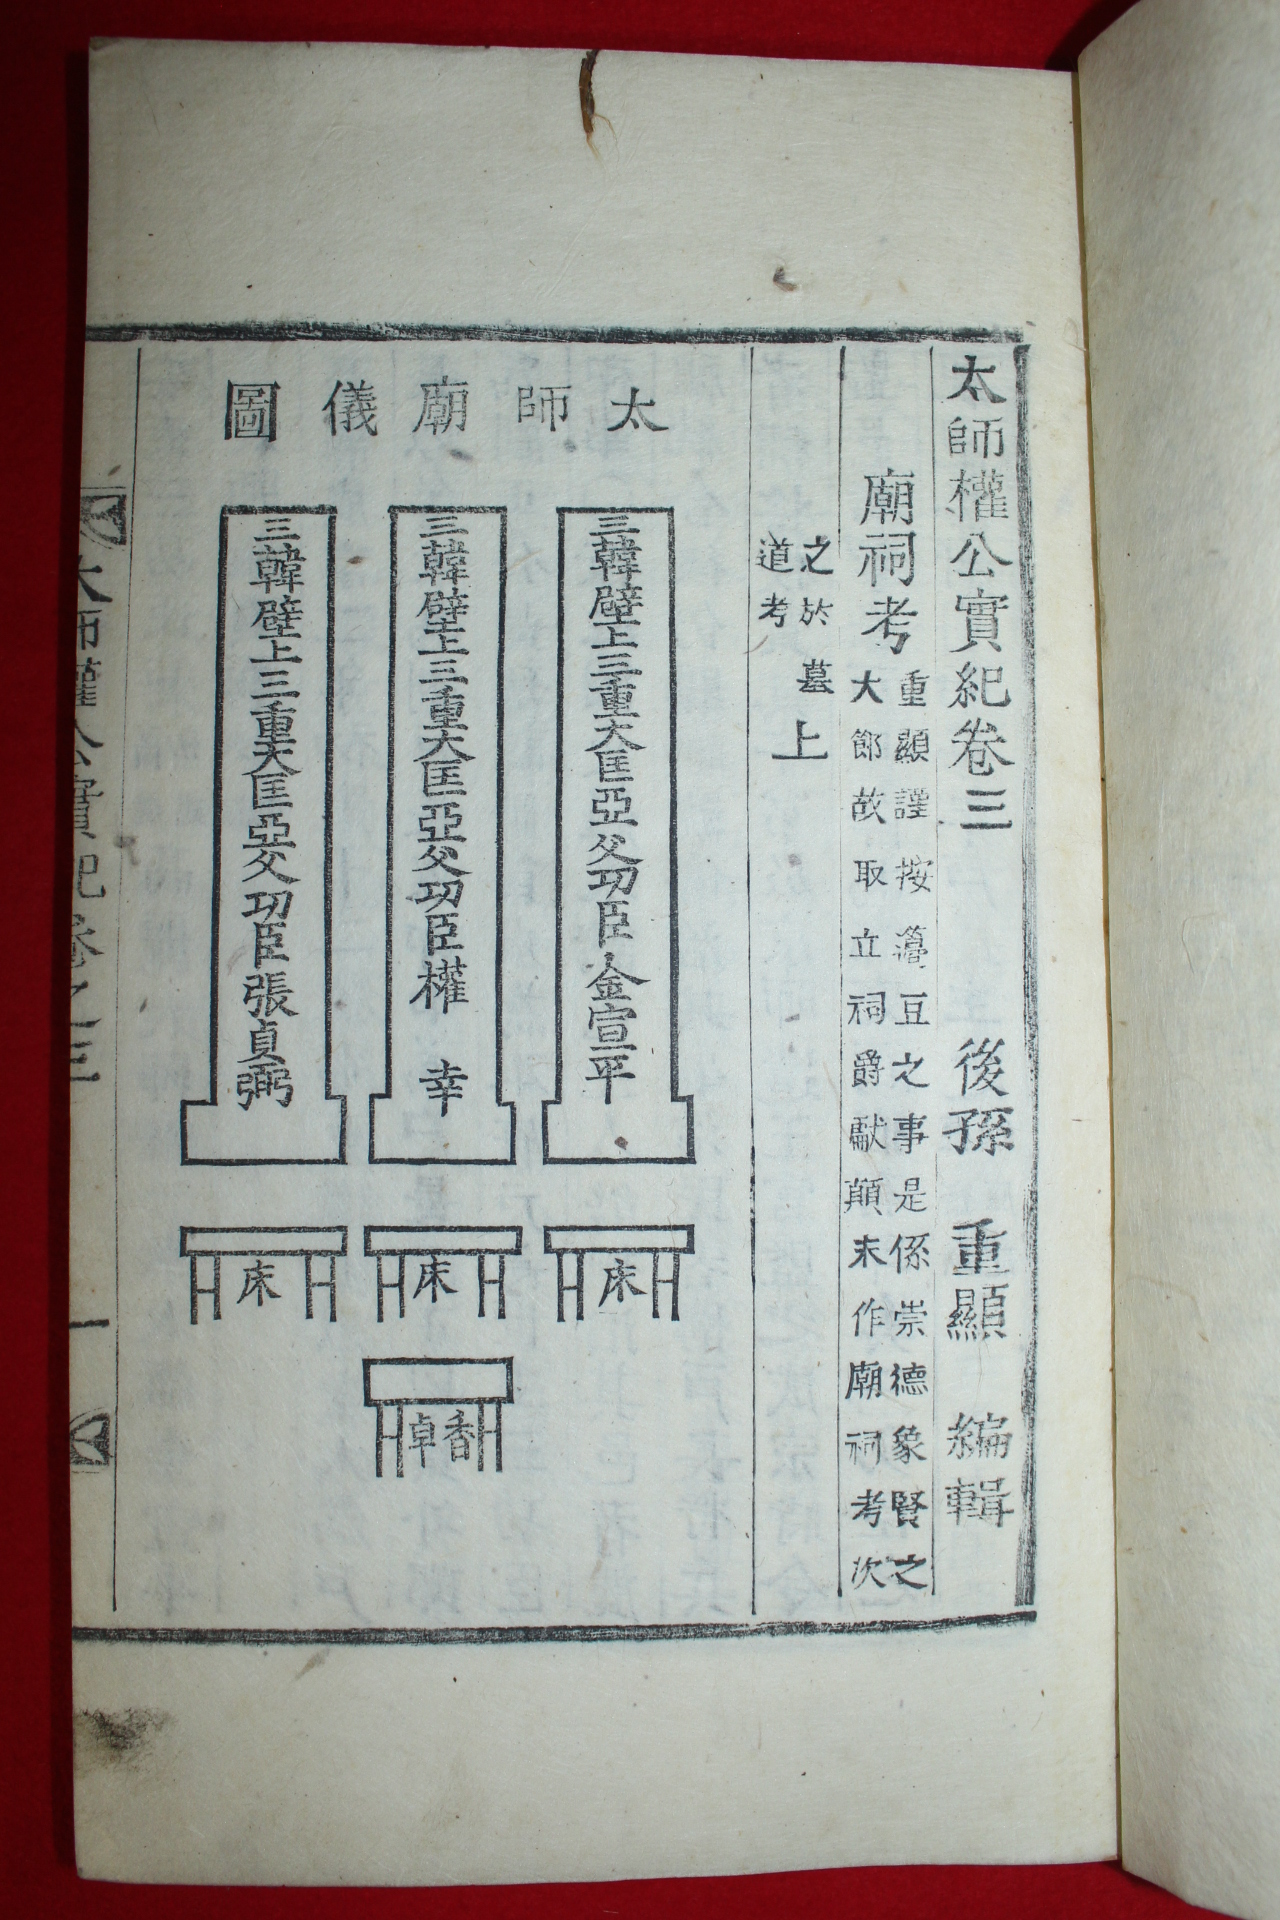 太師權公實紀卷三
後孫 重顯 編輯
廟祠考
重顯謹按籩豆之事是係崇德象賢之
大節故取立祠爵獻顛末作廟祠考次
之於墓
道考
上
太師廟儀圖
三韓壁上三重大匡亞父功臣金宣平
三韓壁上三重大匡亞父功臣權 幸
三韓壁上三重大匡亞父功臣張貞弼
床
床
床
香卓
太師權公實紀卷之三
一